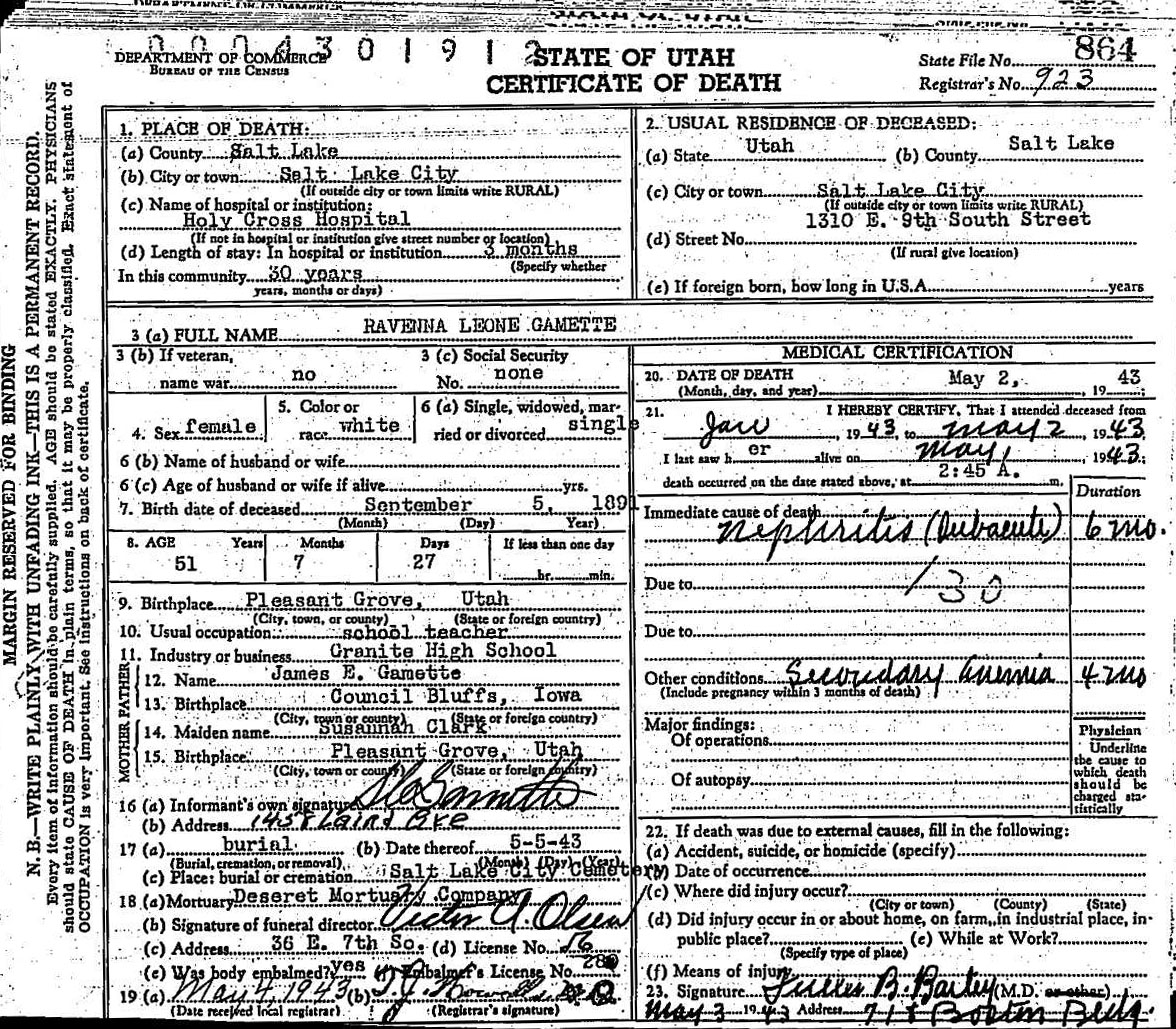 0 0 0 4 3 0 1 9 1 2
DEPARTMENT OF COMMERCE
BUREAU OF THE CENSUS
STATE OF UTAH
CERTIFICATE OF DEATH
State File No. 864
Registrar's No. 923
MARGIN RESERVED FOR BINDING
N. B.—WRITE PLAINLY WITH UNFADING INK—THIS IS A PERMANENT RECORD.
Every item of information should be carefully supplied. AGE should be stated EXACTLY. PHYSICIANS
should state CAUSE OF DEATH in plain terms, so that it may be properly classified. Exact statement of
OCCUPATION is very important. See instructions on back of certificate.
1. PLACE OF DEATH:
(a) County Salt Lake
(b) City or town Salt Lake City
(If outside city or town limits write RURAL)
(c) Name of hospital or institution:
Holy Cross Hospital
(If not in hospital or institution give street number or location)
(d) Length of stay: In hospital or institution 3 months
(Specify whether
In this community 30 years
years, months or days)
2. USUAL RESIDENCE OF DECEASED:
(a) State Utah (b) County Salt Lake
(c) City or town Salt Lake City
(If outside city or town limits write RURAL)
1310 E. 9th South Street
(d) Street No.
(If rural give location)
(e) If foreign born, how long in U.S.A. years
3 (a) FULL NAME RAVENNA LEONE GAMETTE
3 (b) If veteran,
name war no
3 (c) Social Security
No. none
4. Sex female
5. Color or
race white
6 (a) Single, widowed, mar-
ried or divorced single
6 (b) Name of husband or wife
6 (c) Age of husband or wife if alive yrs.
7. Birth date of deceased September 5, 1891
(Month) (Day) Year)
8. AGE Years Months Days If less than one day
51 7 27 hr. min.
9. Birthplace Pleasant Grove, Utah
(City, town, or county) (State or foreign country)
10. Usual occupation school teacher
11. Industry or business Granite High School
FATHER
12. Name James E. Gamette
13. Birthplace Council Bluffs, Iowa
(City, town or county) (State or foreign country)
MOTHER
14. Maiden name Susannah Clark
15. Birthplace Pleasant Grove, Utah
(City, town or county) (State or foreign country)
16 (a) Informant's own signature
(b) Address 1458 Laird Ave
17 (a) burial (b) Date thereof 5-5-43
(Burial, cremation, or removal) (Month) (Day) (Year)
(c) Place: burial or cremation Salt Lake City Cemetery
18 (a) Mortuary Deseret Mortuary Company
(b) Signature of funeral director Victor A. Olsen
(c) Address 36 E. 7th So. (d) License No. 16
(e) Was body embalmed? yes (f) Embalmer's License No.
19 (a) May 4, 1943 (b)
(Date received local registrar) (Registrar's signature)
MEDICAL CERTIFICATION
20. DATE OF DEATH May 2, 1943
(Month, day, and year)
21. I HEREBY CERTIFY, That I attended deceased from
Jan, 1943, to May 2, 1943.
I last saw her alive on May 1, 1943.
death occurred on the date stated above, at 2:45 A. m.
Duration
Immediate cause of death
Nephritis (Subacute) 6 mo.
130
Due to
Due to
Other conditions Secondary Anemia 4 mo
(Include pregnancy within 3 months of death)
Major findings:
Of operations
Of autopsy
Physician
Underline
the cause to
which death
should be
charged sta-
tistically
22. If death was due to external causes, fill in the following:
(a) Accident, suicide, or homicide (specify)
(b) Date of occurrence
(c) Where did injury occur?
(City or town) (County) (State)
(d) Did injury occur in or about home, on farm, in industrial place, in-
public place? (e) While at Work?
(Specify type of place)
(f) Means of injury
23. Signature B. Bartey (M.D. or other)
May 3 1943 Address 718 Boston Bldg.